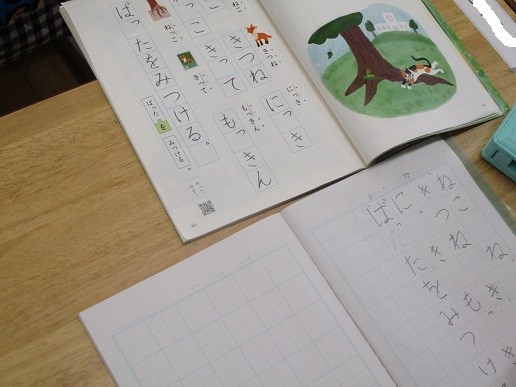 こ
きつね
きつね
っこ
きって
ねっこ
きって
にっき
にっき
もっきん
もっきん
ばったをみつける。
ばった を みつける。
ねこ
きつね
にっき
ばったをみつけ